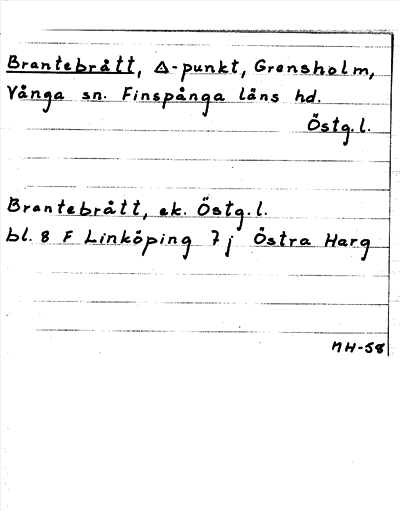 Brantebrått, △-punkt, Grensholm,
Vånga sn. Finspånga läns hd.
Östg.l.
Brantebrått, ek. Östg.l.
bl. 8 F Linköping 7 j Östra Harg
MH-58